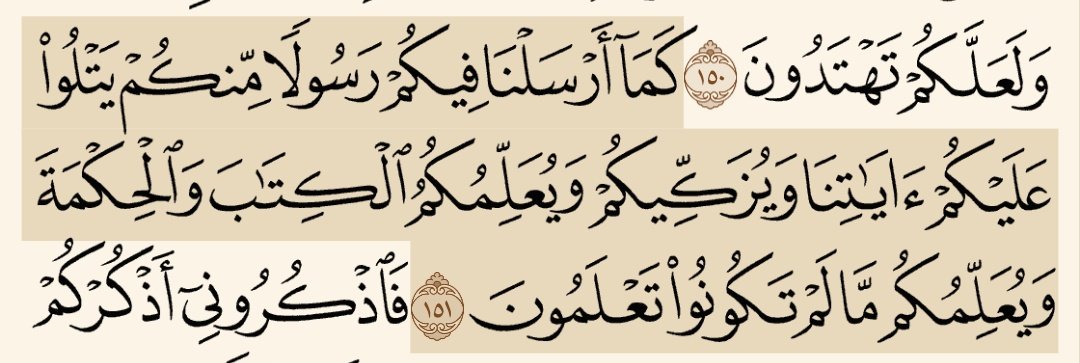 وَلَعَلَّكُمْ تَهْتَدُونَ ١٥٠ كَمَآ أَرْسَلْنَا فِيكُمْ رَسُولًا مِّنكُمْ يَتْلُوا۟
عَلَيْكُمْ ءَايَـٰتِنَا وَيُزَكِّيكُمْ وَيُعَلِّمُكُمُ ٱلْكِتَـٰبَ وَٱلْحِكْمَةَ
وَيُعَلِّمُكُم مَّا لَمْ تَكُونُوا۟ تَعْلَمُونَ ١٥١ فَٱذْكُرُونِىٓ أَذْكُرْكُمْ